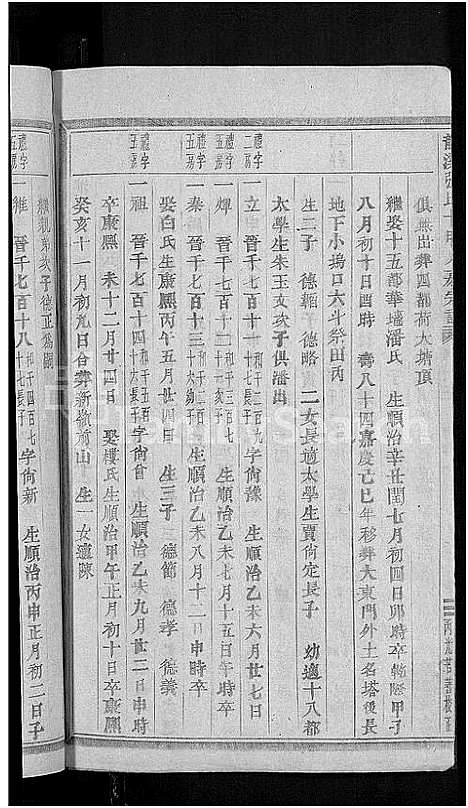 俱無出葬四都荷大塘頂
繼娶十五都華墻潘氏 生順治辛丑閏七月初四日卯時卒乾隆甲子
八月初十日酉時 壽八十四嘉慶己巳年移葬大東門外土名塔後長
地下小塢口六斗祭田丙
生二子 德韜 德略 二女長適太學生賈尚定長子 幼適十八都
太學生朱玉文次子俱潘出
禮字二房
一立 晉千七百十 字尚豫 生順治乙未六月廿七日
禮字五房
一煇 晉千七百十二 生順治乙未七月十五日午時卒
禮字五房
一泰 晉千七百十 生順治乙未八月十二日申時卒
娶白氏生康熙丙午五月廿四日 生三子 德節 德孝 德義
禮字五房
一祖 晉千七百十四 字尚會 生順治乙未九月廿二日申時
卒康熙 未十二月廿四日 娶樓氏生順治甲午正月初十日卒康熙
癸亥十一月初九日合葬新嶺前山 生一女適陳
繼親弟次子德正為嗣
禮字五房
一維 晉千七百十八 和千四百七十七長子 字尚新 生順治丙申正月初二日子